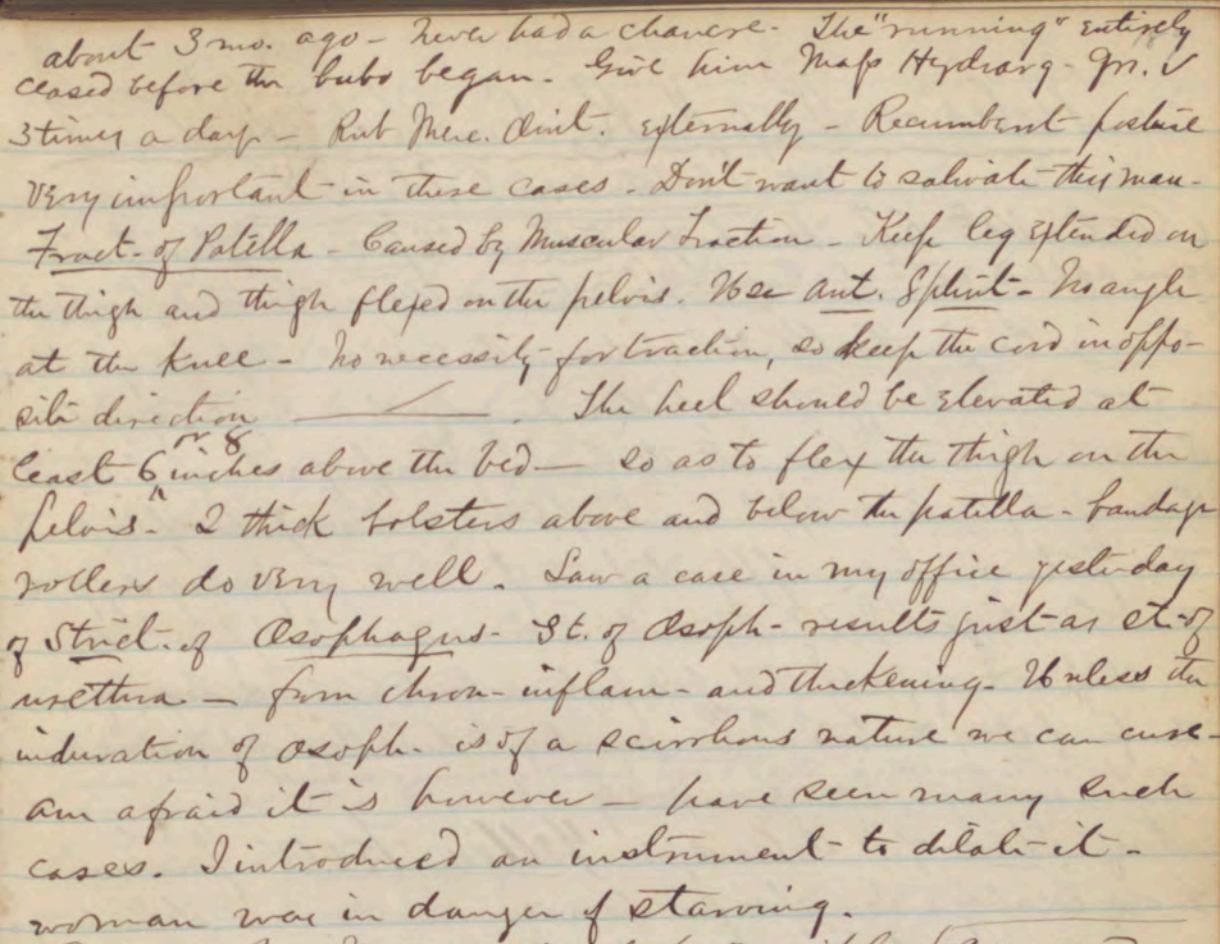 about 3 mo. ago - Never had a chancre. The "running" entirely
ceased before the bubo began. Give him Mass Hydrarg - gr. v
3 times a day - Rub Merc. Oint. externally - Recumbent posture
very important in these cases. Don't want to salivate this man -
Fract. of Patella - Caused by Muscular Traction - Keep leg extended on
the thigh and thigh flexed on the pelvis. Use Ant. Splint - No angle
at the knee - No necessity for traction, so keep the cord in oppo-
site direction. The heel should be elevated at
least 6 or 8 inches above the bed - so as to flex the thigh on the
pelvis - 2 thick bolsters above and below the patella - bandage
rollers do very well. Saw a case in my office yesterday
of Strict. of Œsophagus - St. of Œsoph - results just as st. of
urethra - from chron - inflam - and thickening - Unless the
induration of œsoph - is of a scirrhous nature we can cure -
am afraid it is however - have seen many such
cases. I introduced an instrument to dilate it -
woman was in danger of starving.